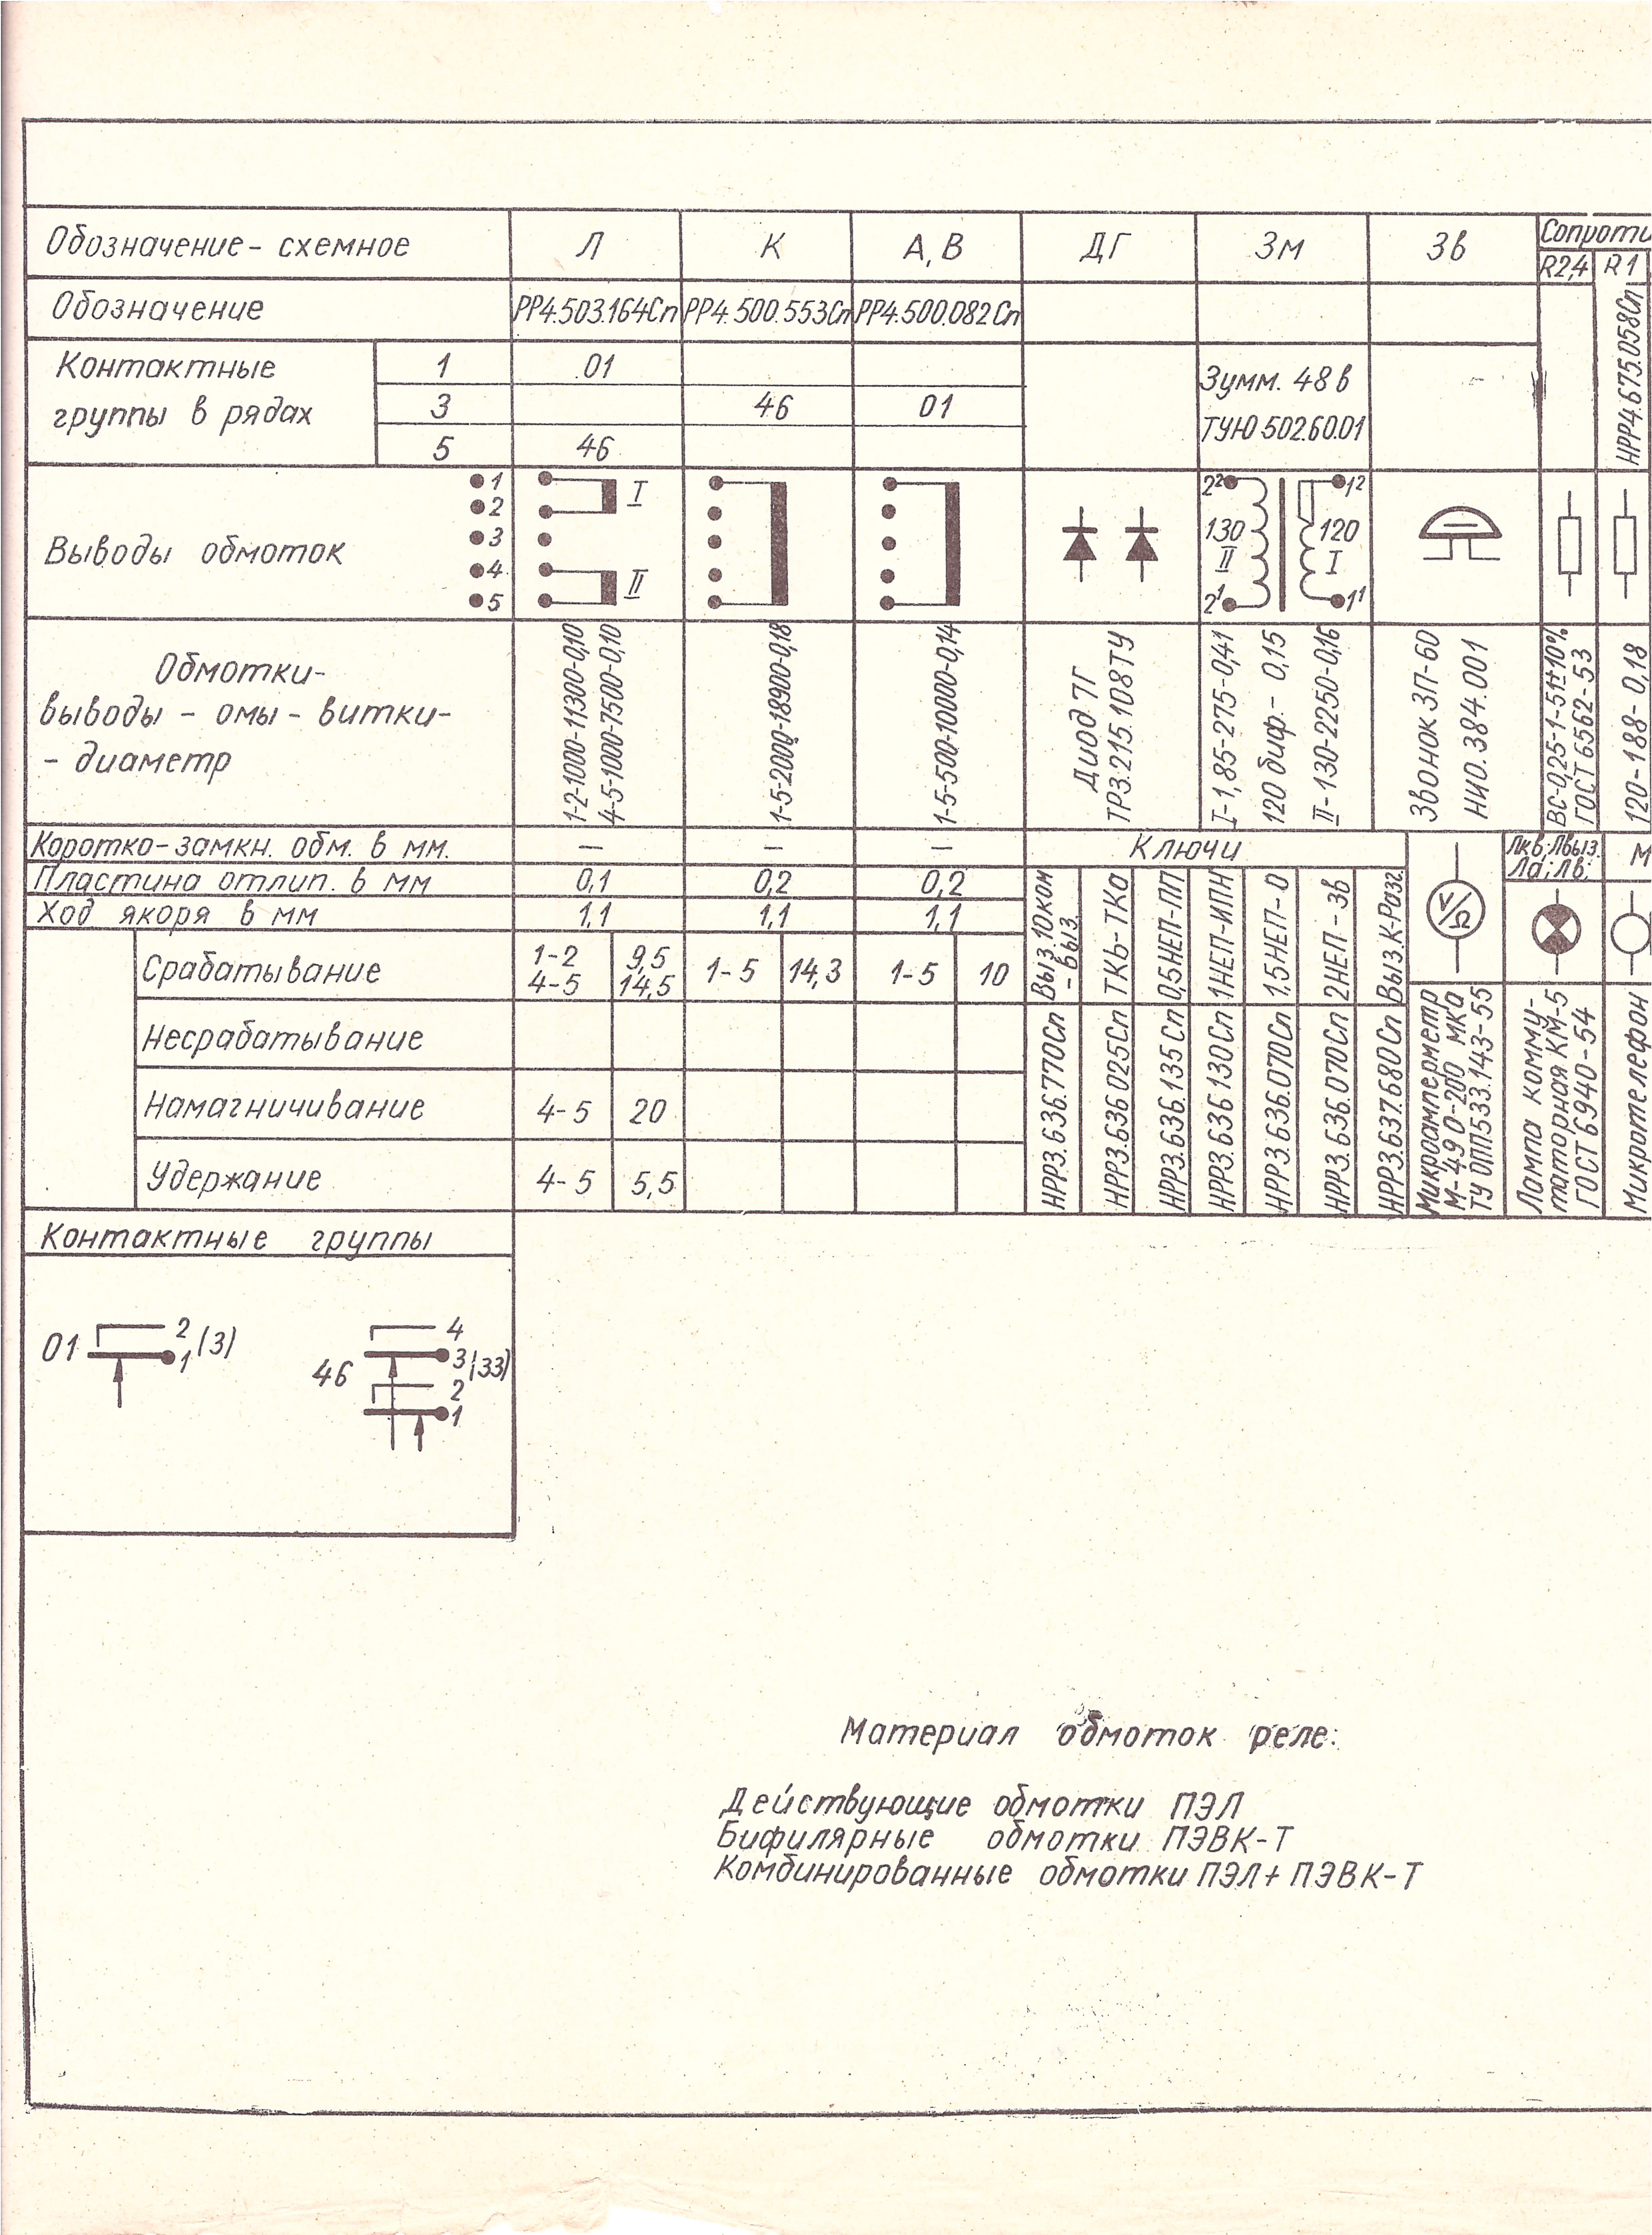 Обозначение - схемное Л К А, В ДГ Зм Зв Сопроти
R2,4 R1
Обозначение РР4.503.164Сп РР4.500.553Сп РР4.500.082Сп НРР4.675.058Сп
Контактные группы в рядах
1 01
3 46 01
5 46
Зумм. 48 в
ТУЮ 502.60.01
Выводы обмоток
1
2
3
4
5
I
II
2² 1²
130 120
II I
2¹ 1¹
Обмотки-
выводы - омы - витки-
- диаметр
1-2-1000-11300-0,10
4-5-1000-7500-0,10
1-5-2000-18900-0,18
1-5-500-10000-0,14
Диод 7Г
ТР3.215.108ТУ
I-1,85-275-0,41
120 биф.- 0,15
II-130-2250-0,16
Звонок ЗП-60
НИО.384.001
ВС-0,25-1-51±10%
ГОСТ 6562-53
120-188-0,18
Коротко-замкн. обм. в мм. — — —
Пластина отлип. в мм 0,1 0,2 0,2
Ход якоря в мм 1,1 1,1 1,1
Срабатывание 1-2 9,5 1-5 14,3 1-5 10
4-5 14,5
Несрабатывание
Намагничивание 4-5 20
Удержание 4-5 5,5
Ключи
Выз.10ком
-Выз.
ТКБ-ТКа
0,5НЕП-ПП
1НЕП-ИПН
1,5НЕП-0
2НЕП-Зв
Выз.К-Разг.
НРР3.636.770Сп
НРР3.636.025Сп
НРР3.636.135Сп
НРР3.636.130Сп
НРР3.636.070Сп
НРР3.636.070Сп
НРР3.637.680Сп
V/Ω
Микроамперметр
М-49 0-200 мка
ТУ ОПП533.143-55
Лкв; Лвыз.
Ла; Лв;
Лампа комму-
таторная КМ-5
ГОСТ 6940-54
М
Микротелефон
Контактные группы
01 2 1 (3)
46 4 3 (33) 2 1
Материал обмоток реле:
Действующие обмотки ПЭЛ
Бифилярные обмотки ПЭВК-Т
Комбинированные обмотки ПЭЛ+ ПЭВК-Т